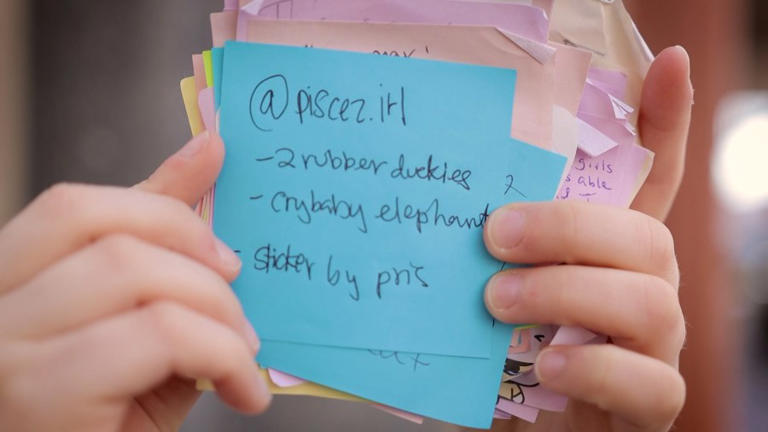 @piscez.irl
- 2 rubber duckies
- crybaby elephant
- sticker by pris
girls
able